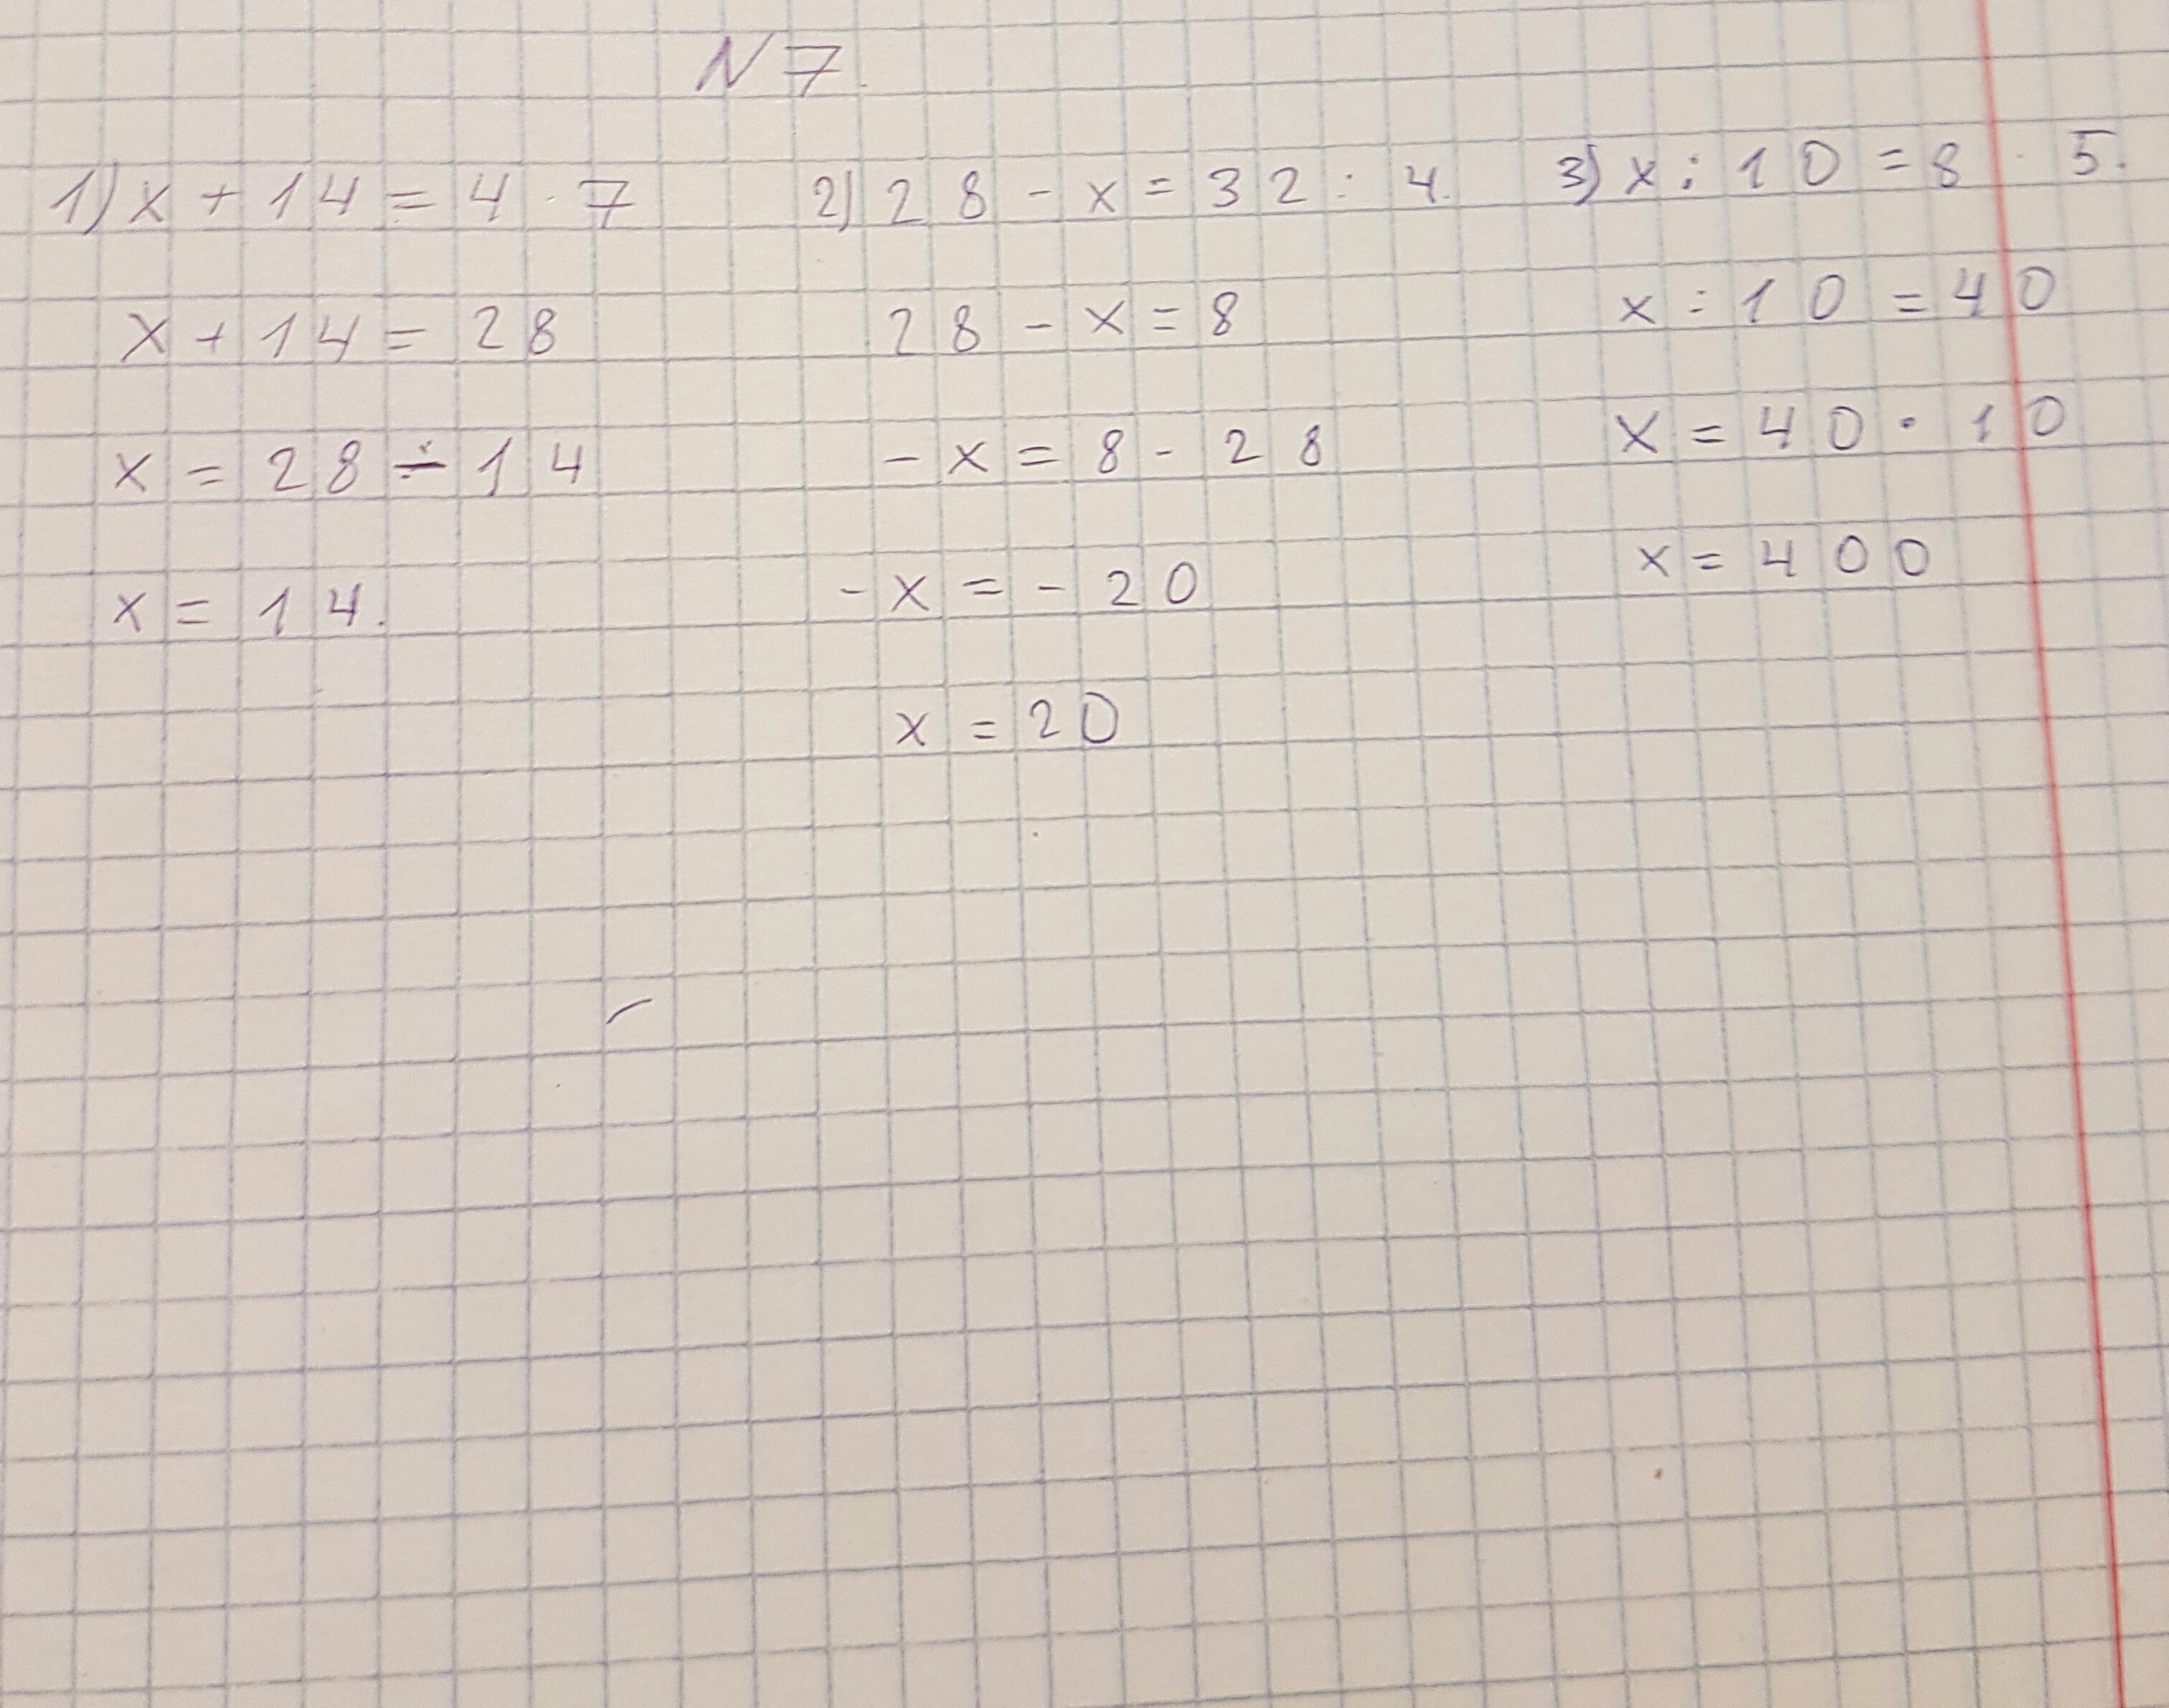 N 7.
1) x + 14 = 4 · 7
x + 14 = 28
x = 28 ÷ 14
x = 14.
2) 28 - x = 32 : 4.
28 - x = 8
- x = 8 - 28
- x = - 20
x = 20
3) x : 10 = 8 · 5.
x : 10 = 40
x = 40 · 10
x = 400